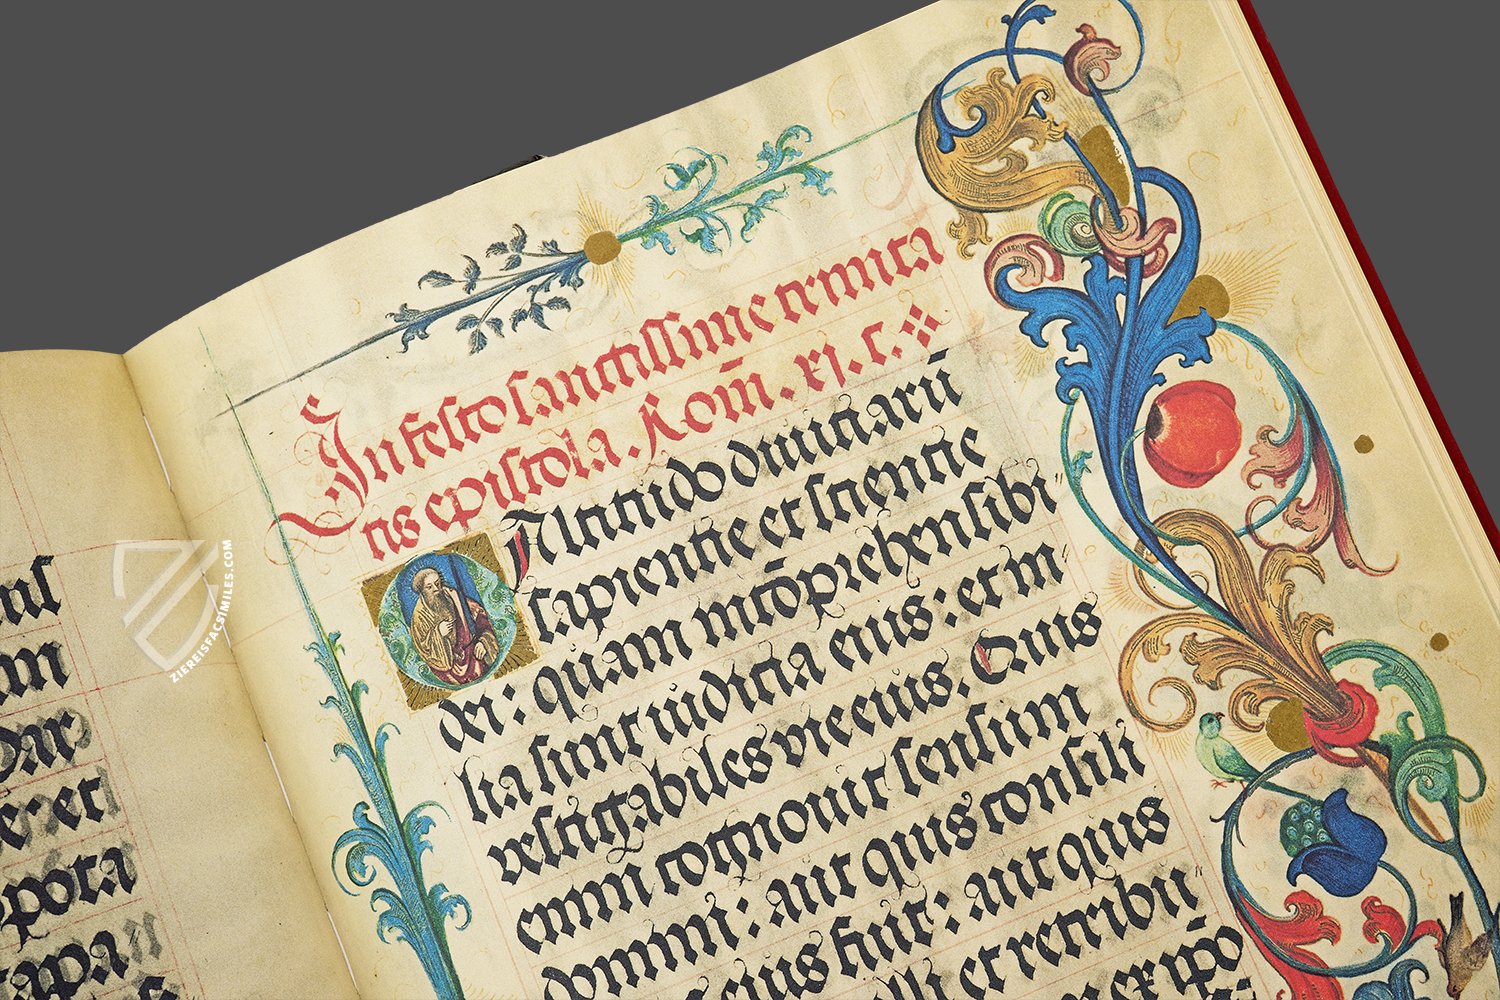 In festo sanctissime trinita
tis epistola. Rom̄. xi. c.
O Altitudo diuitiarū
sapientie et scientie
dei: quam incōprehensibi
lia sunt iudicia eius: et in
vestigabiles vie eius. Quis
enim cognouit sensum
domini: aut quis consili
eius fuit: aut quis
et retribu
ex ipō
us
um
dar
et
pota
apa
ZIEREISFACSIMILES.COM